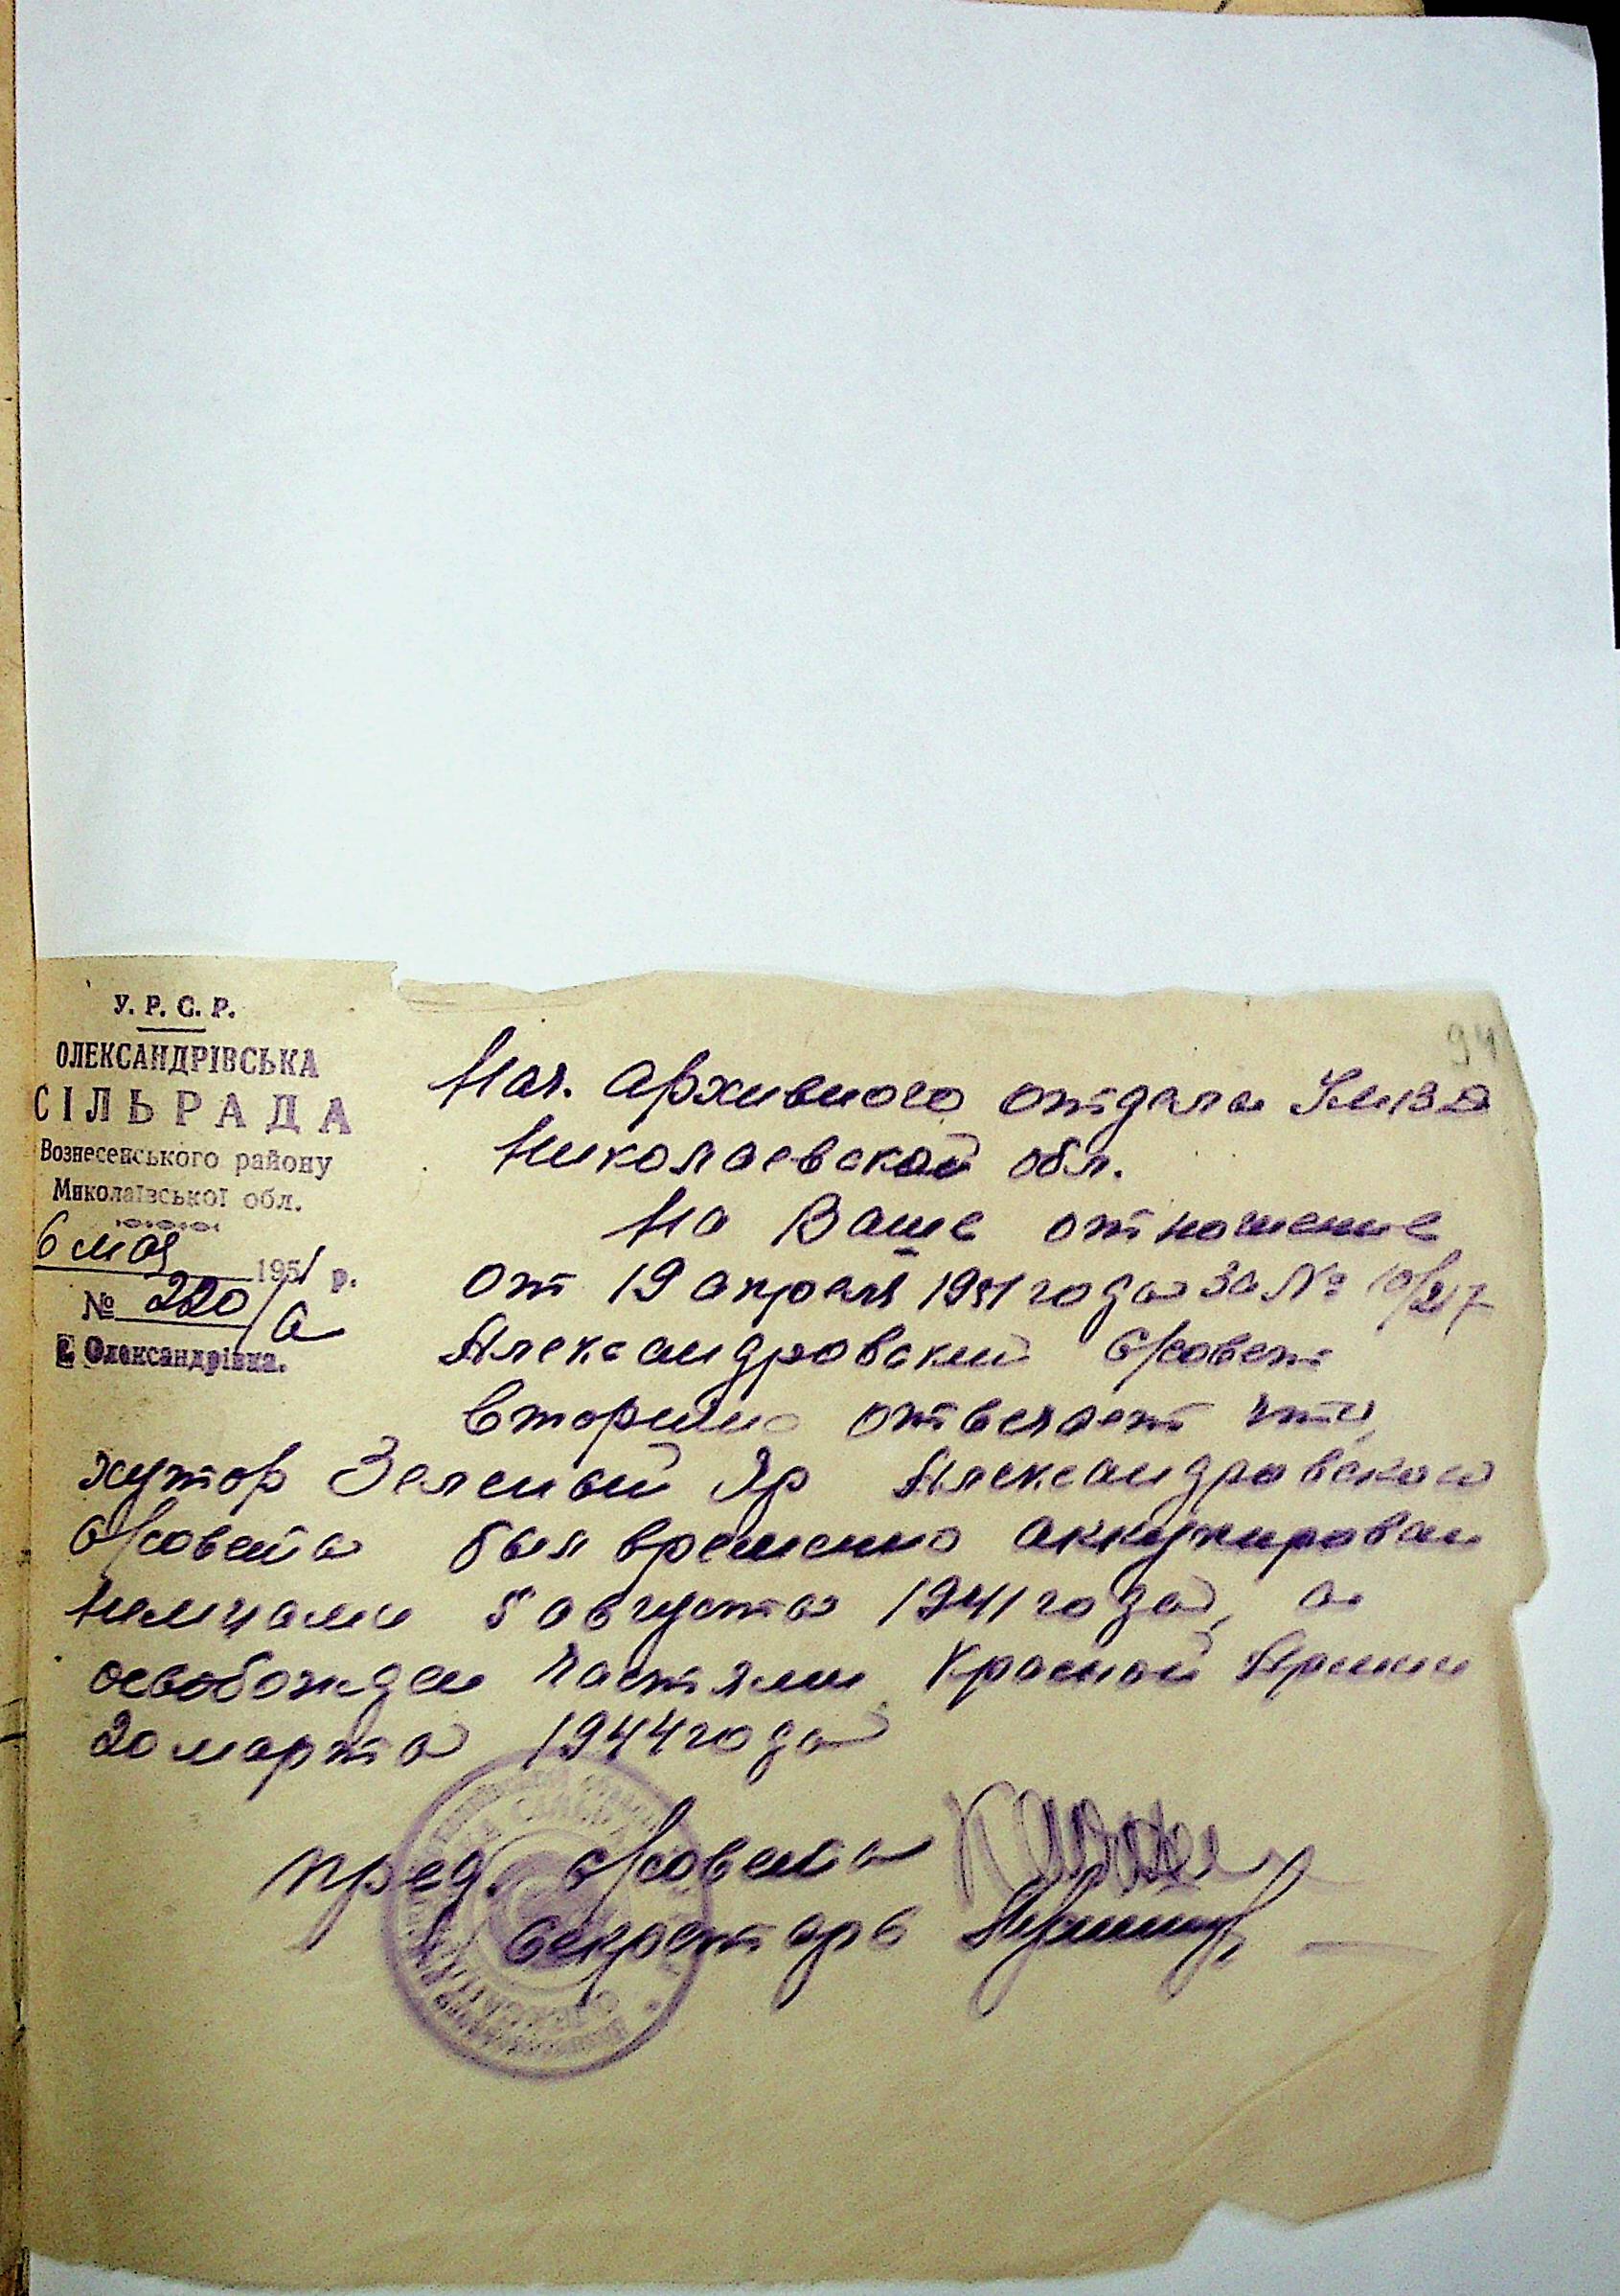 У. Р. С. Р.
ОЛЕКСАНДРІВСЬКА
СІЛЬРАДА
Вознесенського району
Миколаївської обл.
6 мая 1951 р.
№ 220/а
с. Олександрівка.
94
Нач. Архивного отдела УМВД
Николаевской обл.
На Ваше отношение
от 19 апреля 1951 года за № 10/217
Александровский с/совет
вторично отвечает что,
хутор Зеленый Яр Александровского
с/совета был временно аккупирован
немцами 5 августа 1941 года, а
освобожден частями Красной Армии
20 марта 1944 года
пред. с/совета
секретарь